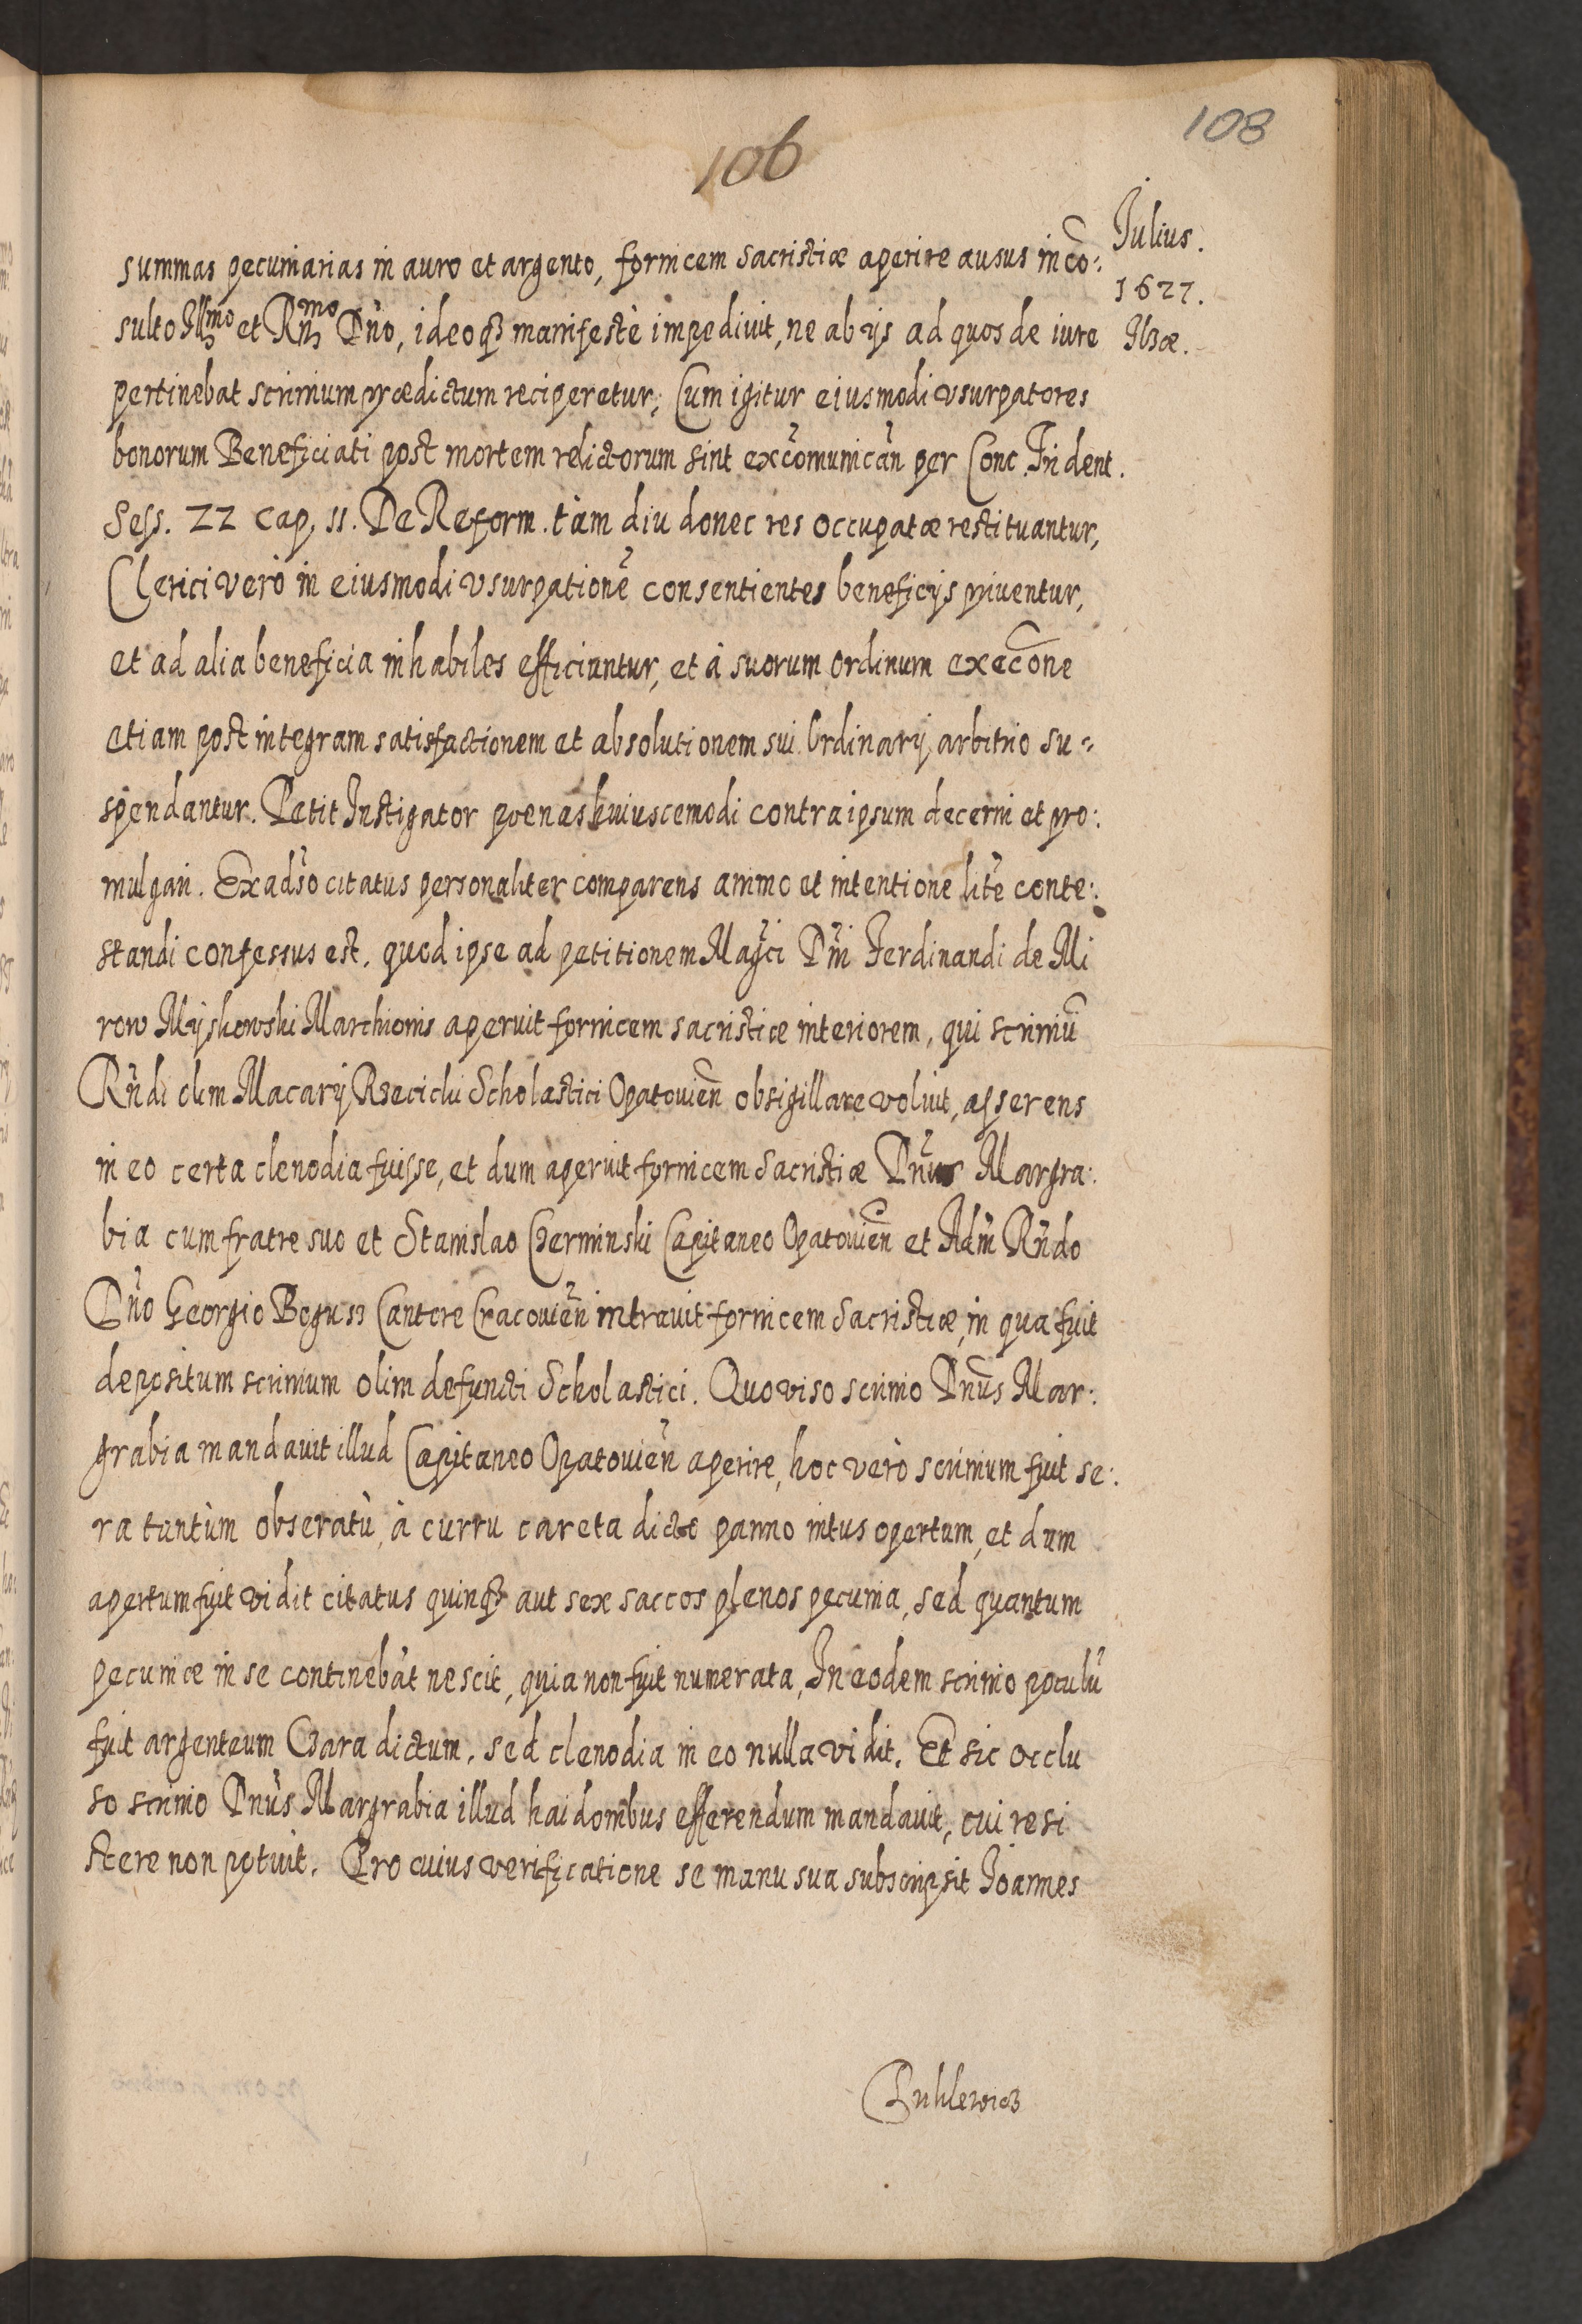 108
106
Julius.
1627.
Ilzæ.
summas pecuniarias in auro et argento, fornicem Sacristiæ aperire ausus inco͂:
sulto Ill͂mo et Rn͂mo Dn͂o, ideoq3 manifestè impediuit, ne ab ijs ad quos de iure
pertinebat scrinium prædictum reciperetur; Cum igitur eiusmodi vsurpatores
bonorum Beneficiati post mortem relictorum sint exco͂munican͂ per Conc. Trident.
Sess. 22 cap. 11. De Reform. tàm diu donec res occupatæ restituantur,
Clerici verò in eiusmodi vsurpatione͂ consentientes beneficijs priuentur,
et ad alia beneficia inhabiles efficiantur, et à suorum ordinum exec͂one
etiam post integram satisfactionem et absolutionem sui Ordinarij arbitrio su=
spendantur. Petit Instigator poenas huiuscemodi contra ipsum decerni et pro:
mulgari. Ex ads͂o citatus personaliter comparens animo et intentione lite͂ conte:
standi confessus est, quod ipse ad petitionem Mag͂ci Dn͂i Ferdinandi de Mi
row Myskowski Marchionis aperuit fornicem sacristiæ interiorem, qui scriniu͂
Rn͂di olim Macarij Rzeciclii Scholastici Opatouien͂ obsigillare voluit, asserens
in eo certa clenodia fuisse, et dum aperuit fornicem Sacristiæ Dn͂us Margra:
bia cum fratre suo et Stanislao Czerminski Capitaneo Opatouien͂ et Adm͂ Rn͂do
Dn͂o Georgio Bogusz Cantore Cracouien͂ intrauit fornicem Sacristiæ, in qua fuit
depositum scrinium olim defuncti Scholastici. Quo viso scrinio Dn͂us Mar:
grabia mandauit illud Capitaneo Opatouien͂ aperire, hoc verò scrinium fuit se:
ra tantùm obseratu͂, à curru careta dicto panno intus opertum, et dum
apertum fuit vidit citatus quinq3 aut sex saccos plenos pecunia, sed quantum
pecuniæ in se continebat nescit, quia non fuit numerata, In eodem scrinio poculu͂
fuit argenteum Czara dictum, sed clenodia in eo nulla vidit. Et sic occlu
so scrinio Dn͂us Margrabia illud haidonibus efferendum mandauit, cui resi
stere non potuit. Pro cuius verificatione se manu sua subscripsit Joannes